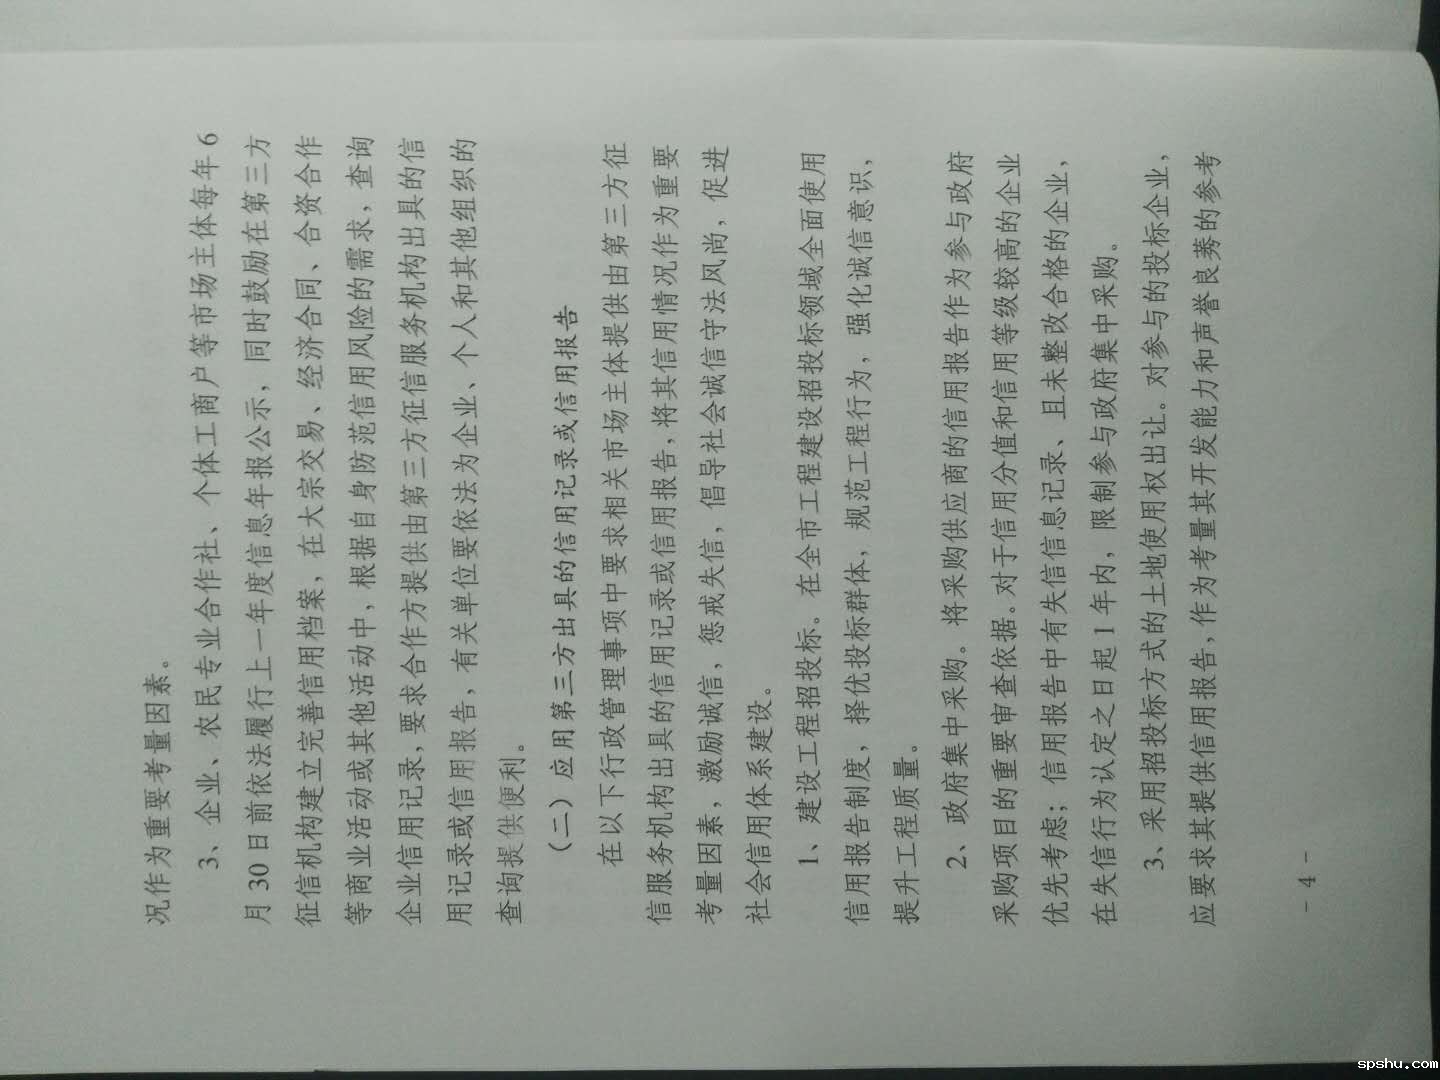 况作为重要考量因素。
3、企业、农民专业合作社、个体工商户等市场主体每年 6
月 30 日前依法履行上一年度信息年报公示，同时鼓励在第三方
征信机构建立完善信用档案，在大宗交易、经济合同、合资合作
等商业活动或其他活动中，根据自身防范信用风险的需求，查询
企业信用记录，要求合作方提供由第三方征信服务机构出具的信
用记录或信用报告，有关单位要依法为企业、个人和其他组织的
查询提供便利。
（二）应用第三方出具的信用记录或信用报告
在以下行政管理事项中要求相关市场主体提供由第三方征
信服务机构出具的信用记录或信用报告，将其信用情况作为重要
考量因素，激励诚信，惩戒失信，倡导社会诚信守法风尚，促进
社会信用体系建设。
1、建设工程招投标。在全市工程建设招投标领域全面使用
信用报告制度，择优投标群体，规范工程行为，强化诚信意识，
提升工程质量。
2、政府集中采购。将采购供应商的信用报告作为参与政府
采购项目的重要审查依据。对于信用分值和信用等级较高的企业
优先考虑；信用报告中有失信信息记录、且未整改合格的企业，
在失信行为认定之日起 1 年内，限制参与政府集中采购。
3、采用招投标方式的土地使用权出让。对参与的投标企业，
应要求其提供信用报告，作为考量其开发能力和声誉良莠的参考
- 4 -
spshu.com